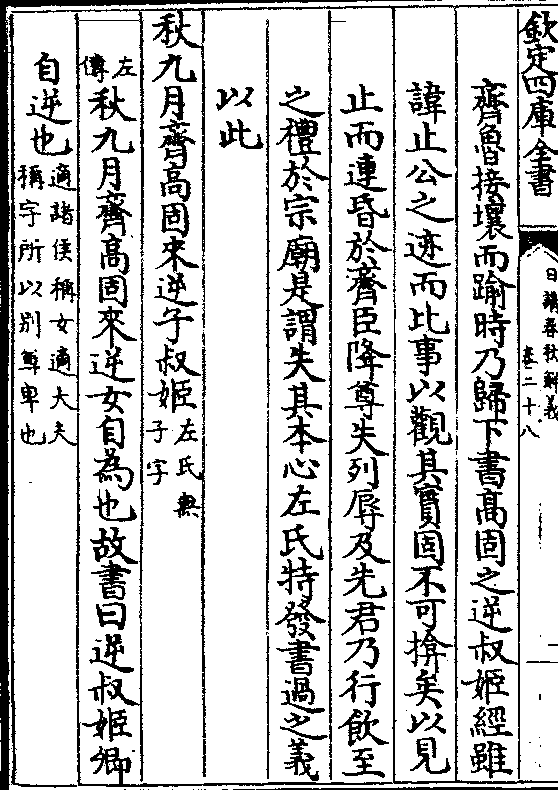 欽定四庫全書
日講春秋解義
卷二十八
齊魯接壤而踰時乃歸下書髙固之逆叔姬經雖
諱止公之迹而比事以觀其實固不可揜矣以見
止而連昏於齊臣降尊失列辱及先君乃行飲至
之禮於宗廟是謂失其本心左氏特發書過之義
以此
秋九月齊髙固來逆子叔姬左氏無子字
左傳秋九月齊髙固來逆女自為也故書曰逆叔姬卿
自逆也適諸侯稱女適大夫稱字所以别尊卑也